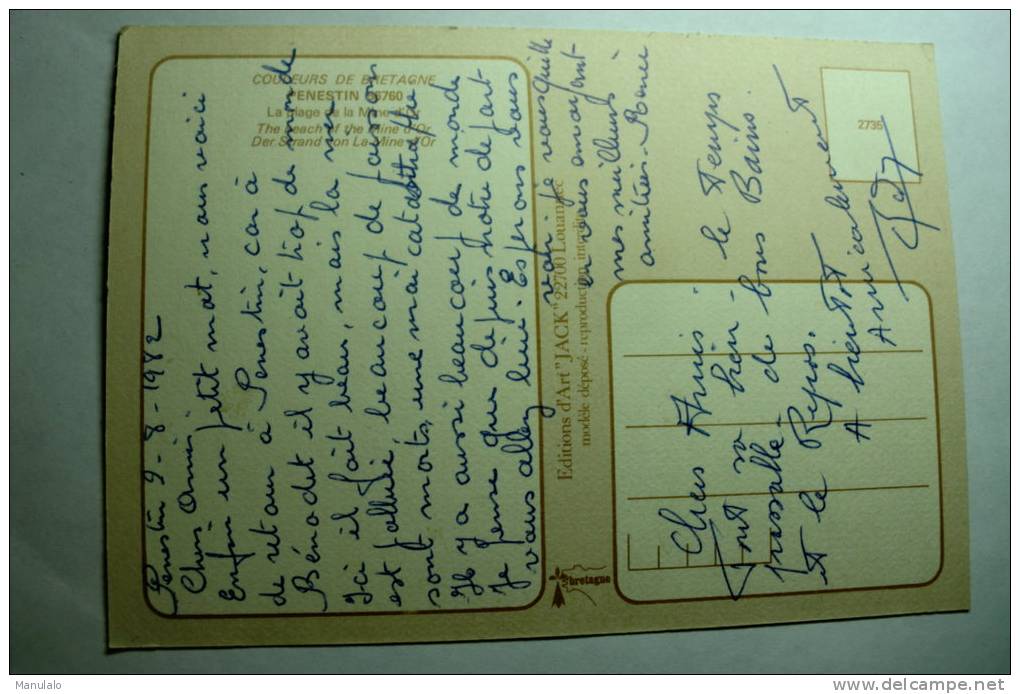 COULEURS DE BRETAGNE
PENESTIN 56760
La plage de la Mine d'Or
The beach of the Mine d'Or
Der Strand von La Mine d'Or
Penestin 9-8-1982
Chers Amis
Enfin un petit mot, nous voici
de retour à Penestin, car à
Bénodet il y avait trop de monde
Ici il fait beau, mais la mer
est polluée beaucoup de poissons
sont morts, une vraie catastrophe
Il y a aussi beaucoup de monde
Je pense que depuis notre départ
vous allez bien. Espérons vous
voir je vous quitte
en vous envoyant
mes meilleurs
amitiés - Renée
Editions d'Art "JACK" 22700 Louannec
modèle déposé - reproduction interdite
bretagne
2735
Chers Amis
Tout va bien - le Temps
passable - de bons Bains.
et le Repos.
A bientôt
Amicalement
Manulalo
delcampe.net